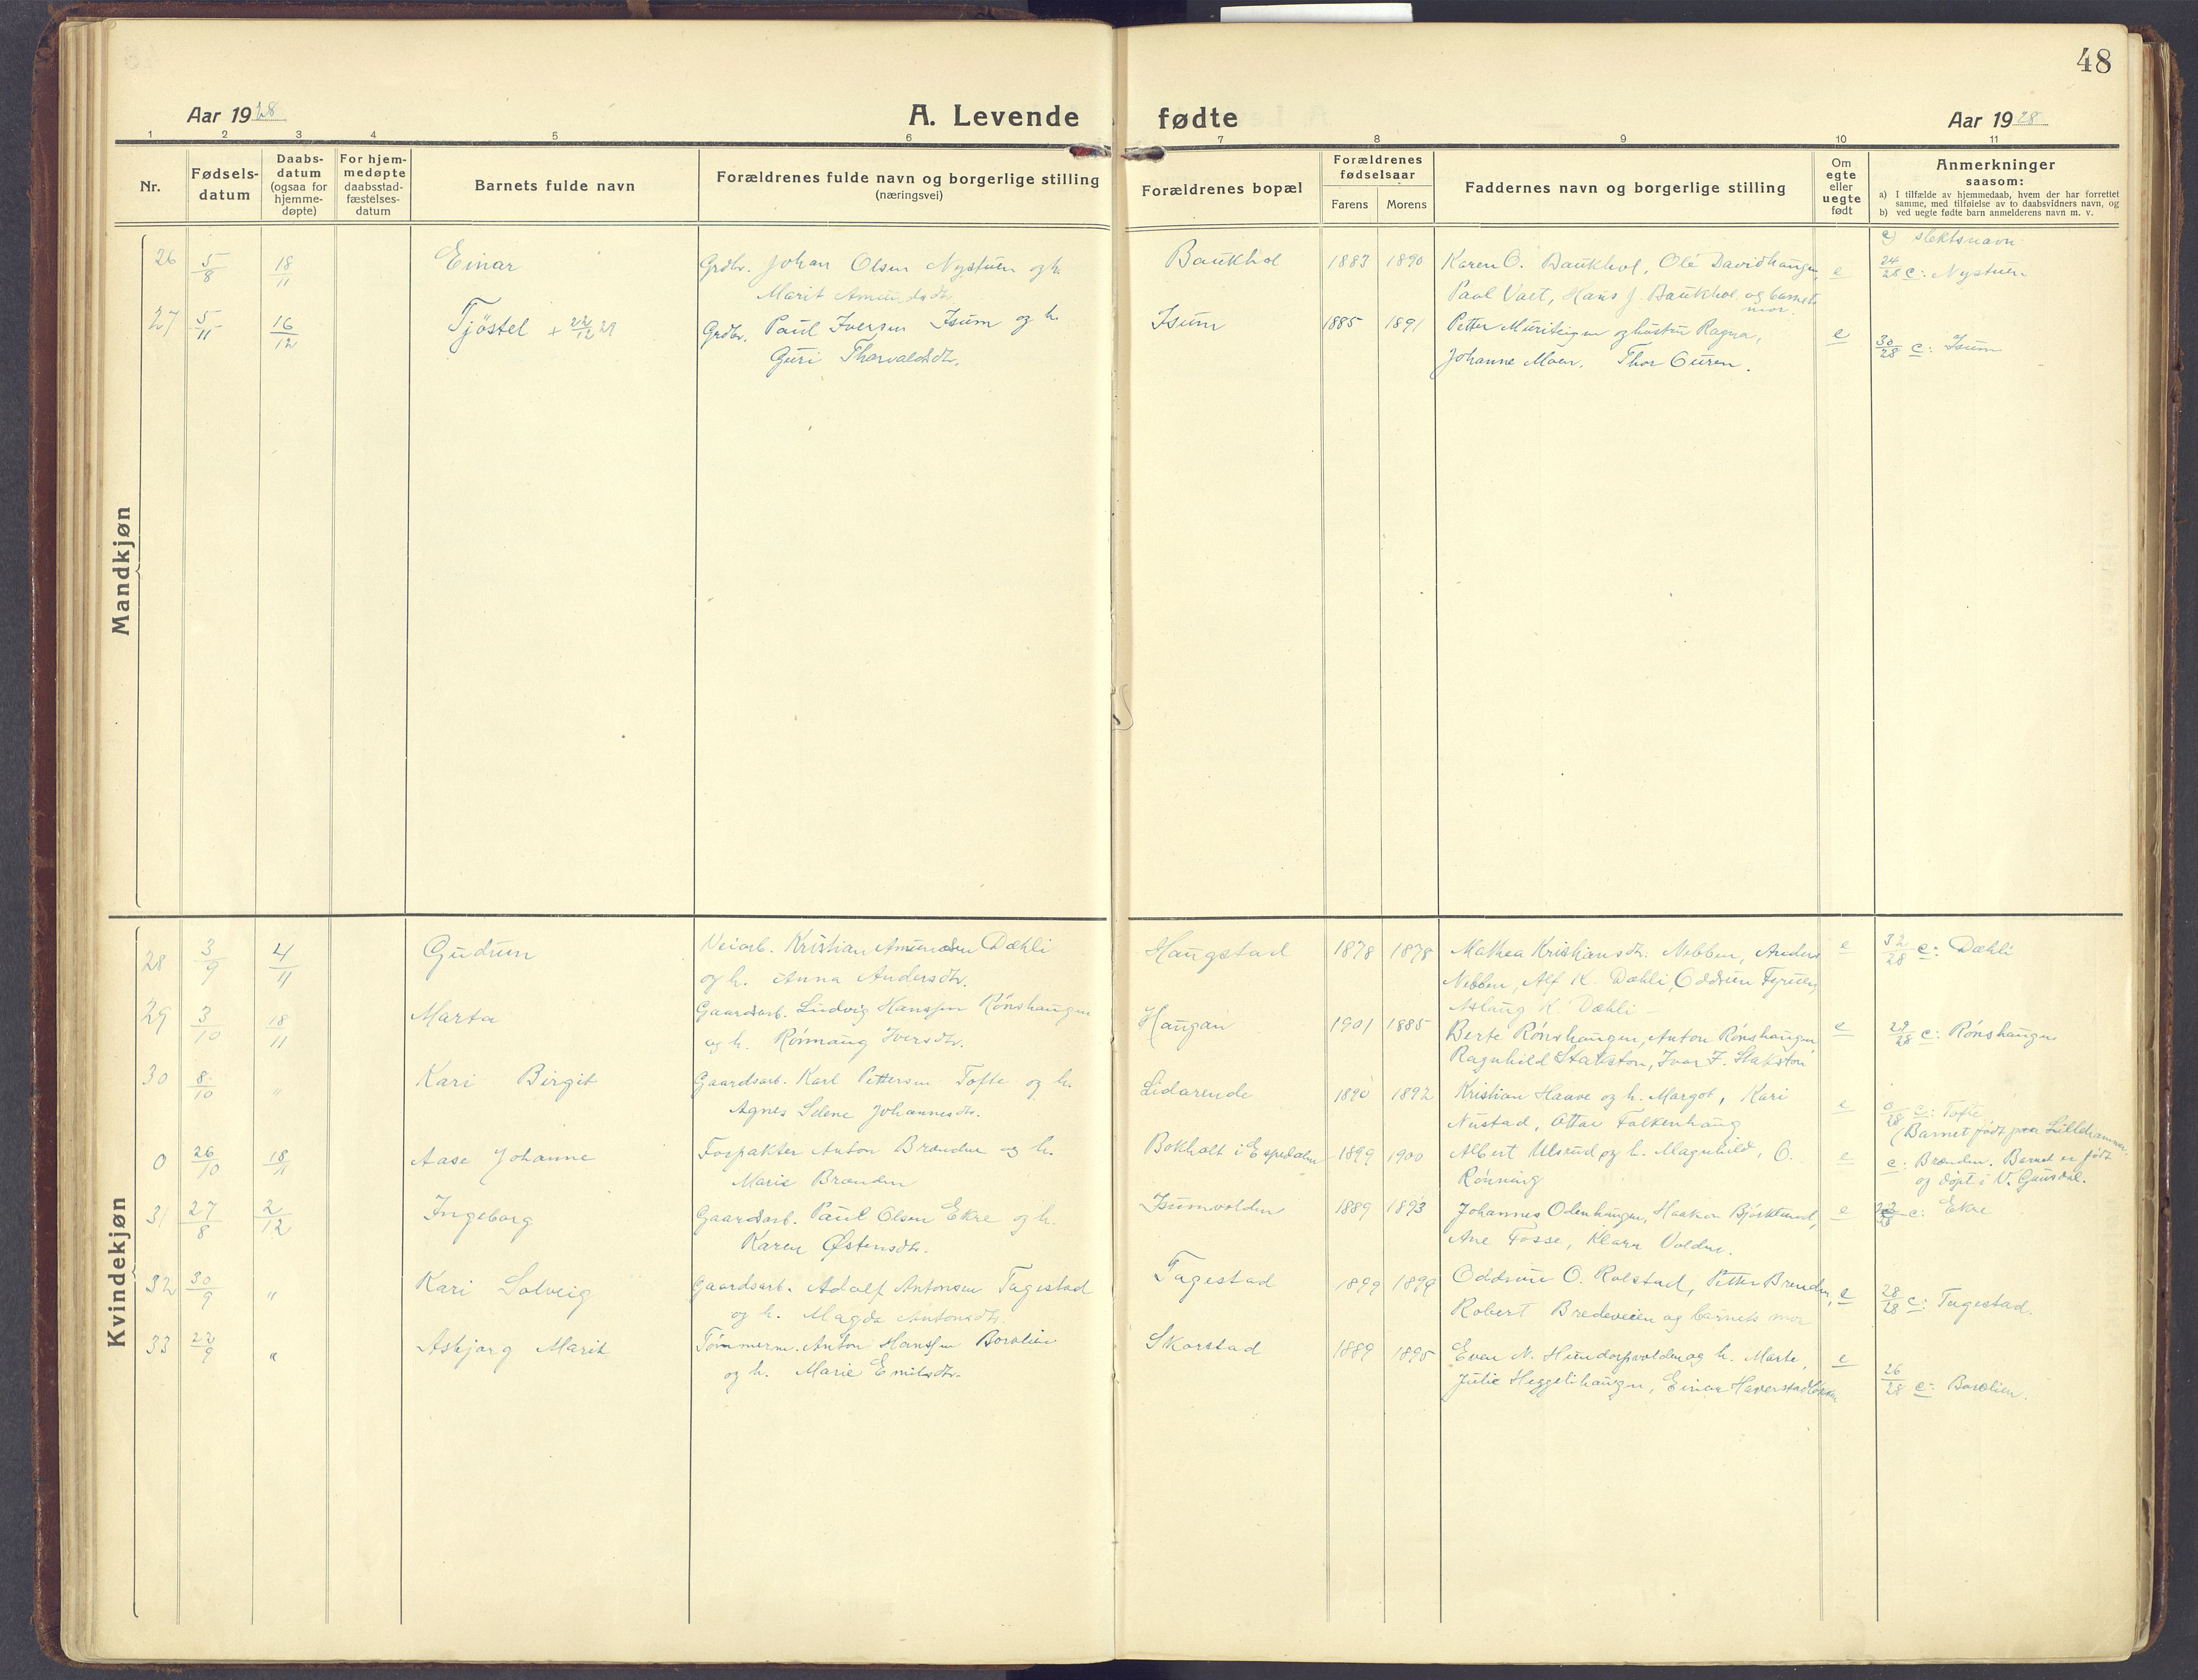 48
Aar 1928
A. Levende fødte
Aar 1928
1 2 3 4 5 6 7 8 9 10 11
Nr.
Fødsels-
datum
Daabs-
datum
(ogsaa for
hjemme-
døpte)
For hjem-
medøpte
daabsstad-
fæstelses-
datum
Barnets fulde navn
Forældrenes fulde navn og borgerlige stilling
(næringsvei)
Forældrenes bopæl
Forældrenes
fødselsaar
Farens
Morens
Faddernes navn og borgerlige stilling
Om
egte
eller
uegte
født
Anmerkninger
saasom:
a) I tilfælde av hjemmedaab, hvem der har forrettet
samme, med tilføielse av to daabsvidners navn, og
b) ved uegte fødte barn anmelderens navn m. v.
Mandkjøn
c) slektsnavn
26 5/8 18/11 Einar Grdbr. Johan Olsen Nystuen og h. Baukhol 1883 1890 Karen O. Baukhol, Ole Davidhaugen, e 24/28 c: Nystuen
Marit Amundsdtr. Paul Vaet, Hans J. Baukhol og barnets
mor.
27 5/11 16/12 Tjöstel + 22/12 29 Grdbr. Paul Iversen Isum og h. Isum 1885 1891 Petter Muriteigen og hustru Ragna, e 30/28 c: Isum
Guri Thorvaldsdtr. Johanne Moen. Thor Guren.
Kvindekjøn
28 3/9 4/11 Gudrun Veiarb. Kristian Amundsen Dæhli Haugstad 1878 1878 Mathea Kristiansdtr. Nebben, Anders e 32/28 c: Dæhli
og h. Anna Andersdtr. Nebben, Alf K. Dæhli, Oddrun
Aslaug K. Dæhli
29 3/10 18/11 Marta Gaardsarb. Ludvig Hanssen Rönshaugen Haugan 1901 1885 Berte Rönshaugen, Anton Rönshaugen e 29/28 c: Rönshaugen
og h. Rönnaug Iversdtr. Ragnhild Stakston, Ivar F. Stakston
30 8/10 " Kari Birgit Gaardsarb. Karl Pettersen Tofte og h. Lidarende 1890 1892 Kristian Haave og h. Margot, Kari e 0/28 c: Tofte
Agnes Selene Johannesdtr. Nustad, Ottar Falkenhaug (Barnet født paa Lillehammer.
0 26/10 18/11 Aase Johanne Forpakter Anton Brænden og h. Bokholt i Espedalen 1899 1900 Albert Ulsrud og h. Magnhild, O. e c: Brænden. Barnet er født
Marie Brænden Rønning og døpt i V. Gausdal.
31 27/8 2/12 Ingeborg Gaardsarb. Paul Olsen Ekre og h. Isumvolden 1889 1893 Johannes Odenhaugen, Haakon e c: Ekre
Karen Østensdtr. Ane Fosse, Klara Volden.
32 30/9 " Kari Solveig Gaardsarb. Adolf Antonsen Tagestad Tagestad 1899 1899 Oddrun O. Rolstad, Petter Brenden, e 28/28 c: Tagestad.
og h. Magda Antonsdtr. Robert Bredeveien og barnets mor
33 22/9 " Asbjørg Marit Tømmerm. Anton Hanssen Borolien Skarstad 1889 1895 Even N. Hundorpvolden og h. Marte, e 26/28 c: Borolien.
og h. Marie Emilsdtr. Julie Heggelihaugen, Einar